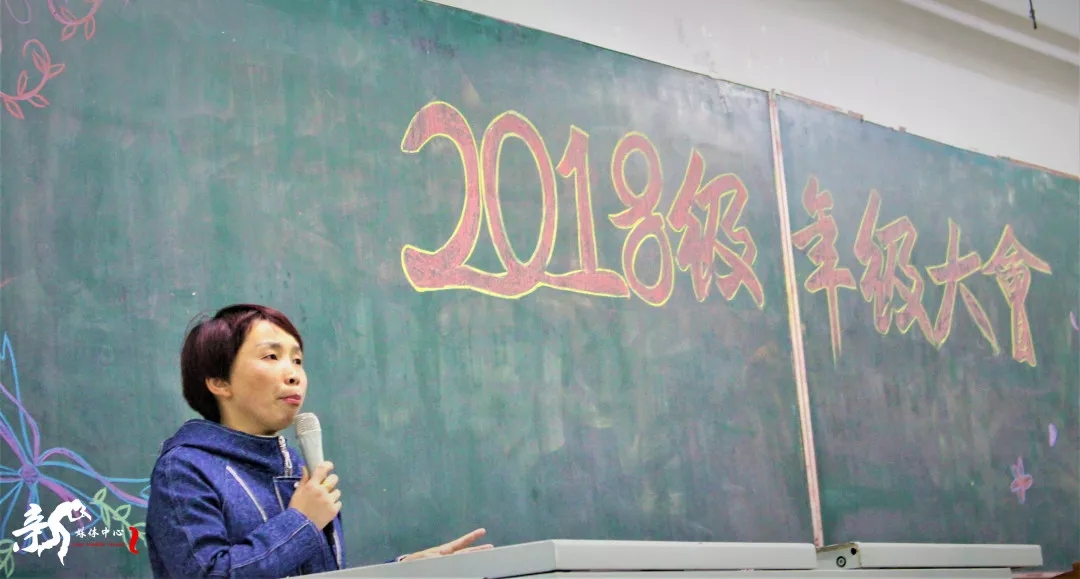 2018级 年级大會
新
媒体中心